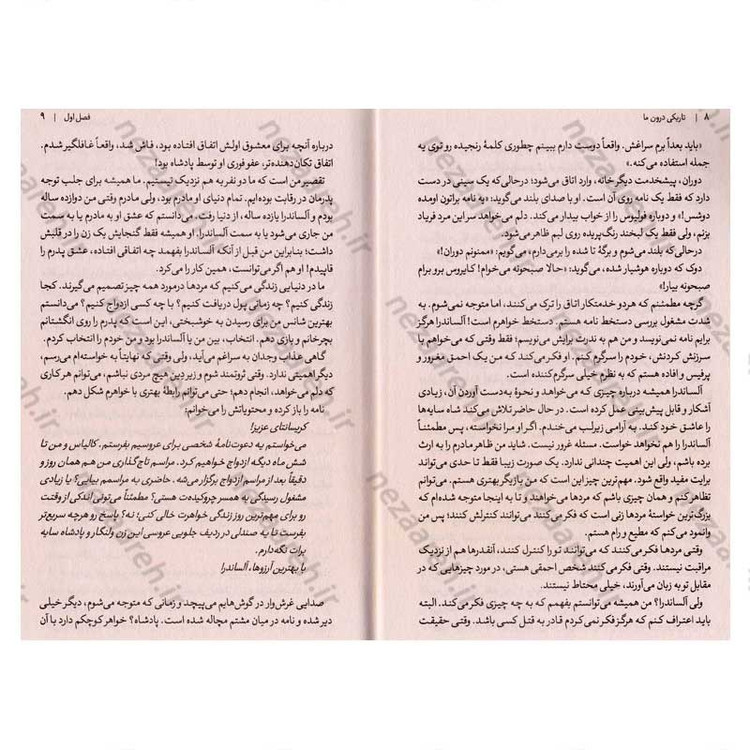 ۸ | تاریکی درون ما
«باید بعداً برم سراغش. واقعاً دوست دارم ببینم چطوری کلمهٔ رنجیده رو توی یه
جمله استفاده می‌کنه.»
دوران، پیشخدمت دیگر خانه، وارد اتاق می‌شود؛ درحالی‌که یک سینی در دست
دارد که فقط یک نامه روی آن است. او با صدای بلند می‌گوید: «یه نامه براتون اومده
دوشس!» و دوباره فولیوس را از خواب بیدار می‌کند. دلم می‌خواهد سر این مرد فریاد
بزنم، ولی فقط یک لبخند رنگ‌پریده روی لبم ظاهر می‌شود.
درحالی‌که بلند می‌شوم و برگهٔ تا شده را برمی‌دارم، می‌گویم: «ممنونم دوران!»
دوک که دوباره هوشیار شده، می‌گوید: «حالا صبحونه می‌خوام! کایروس برو برام
صبحونه بیار!»
گرچه مطمئنم که هردو خدمتکار اتاق را ترک می‌کنند، اما متوجه نمی‌شوم. به
شدت مشغول بررسی دستخط نامه هستم. دستخط خواهرم است! آلساندرا هرگز
برایم نامه نمی‌نویسد و من هم به ندرت برایش می‌نویسم؛ فقط وقتی که می‌خواهم با
سرزنش کردنش، خودم را سرگرم کنم. او فکر می‌کند که من یک احمق مغرور و
پرفیس و افاده هستم که به نظرم خیلی سرگرم‌کننده است.
آلساندرا همیشه درباره چیزی که می‌خواهد و نحوهٔ به‌دست آوردن آن، زیادی
آشکار و قابل پیش‌بینی عمل کرده است. در حال حاضر تلاش می‌کند شاه سایه‌ها
را عاشق خود کند. به آرامی زیرلب می‌خندم. اگر او مرا نخواسته، پس مطمئناً
آلساندرا را هم نخواهد خواست. مسئله غرور نیست. شاید من ظاهر مادرم را به ارث
برده باشم، ولی این اهمیت چندانی ندارد. یک صورت زیبا فقط تا حدی می‌تواند
برایت مفید واقع شود. مهم‌ترین چیز این است که من بازیگر بهتری هستم. می‌توانم
تظاهر کنم و همان چیزی باشم که مردها می‌خواهند و تا به اینجا متوجه شده‌ام که
بزرگ‌ترین خواستهٔ مردها زنی است که فکر می‌کنند می‌توانند کنترلش کنند؛ پس
وانمود می‌کنم که مطیع و رام هستم.
وقتی مردها فکر می‌کنند که می‌توانند تو را کنترل کنند، آنقدرها هم از نزدیک
مراقبت نیستند. وقتی فکر می‌کنند شخص احمقی هستی، در مورد چیزهایی که در
مقابل تو به زبان می‌آورند، خیلی محتاط نیستند.
ولی آلساندرا؟ من همیشه می‌توانستم بفهمم که به چه چیزی فکر می‌کند. البته
باید اعتراف کنم که هرگز فکر نمی‌کردم قادر به قتل کسی باشد. وقتی حقیقت
فصل اول | ۹
درباره آنچه برای معشوق اولش اتفاق افتاده بود، فاش شد، واقعاً غافلگیر شدم.
اتفاق تکان‌دهنده‌تر، عفو فوری او توسط پادشاه بود!
تقصیر من است که ما دو نفر به هم نزدیک نیستیم. ما همیشه برای جلب توجه
پدرمان در رقابت بوده‌ایم. تمام دنیای او مادرم بود، ولی مادرم وقتی من دوازده ساله
بودم و آلساندرا یازده ساله، از دنیا رفت. می‌دانستم که عشق او به مادرم یا به سمت
من جاری می‌شود یا به سمت آلساندرا. او فقط گنجایش یک زن را در قلبش
داشت؛ بنابراین من قبل از آنکه آلساندرا بفهمد چه اتفاقی افتاده، عشق پدرم را
قاپیدم! او هم اگر می‌توانست، همین کار را می‌کرد.
ما در دنیایی زندگی می‌کنیم که مردها درمورد همه چیز تصمیم می‌گیرند. کجا
زندگی کنیم؟ چه زمانی پول دریافت کنیم؟ با چه کسی ازدواج کنیم؟ می‌دانستم
بهترین شانس من برای رسیدن به خوشبختی، این است که پدرم را روی انگشتانم
بچرخانم و بازی دهم. انتخاب، بین من یا آلساندرا بود و من خودم را انتخاب کردم.
گاهی عذاب وجدان به سراغم می‌آید، ولی وقتی که نهایتاً به خواسته‌ام می‌رسم،
دیگر اهمیتی ندارد. وقتی ثروتمند شوم و زیر دین هیچ مردی نباشم، می‌توانم هر کاری
که دلم می‌خواهد، انجام دهم؛ حتی می‌توانم رابطهٔ بهتری با خواهرم شکل دهم.
نامه را باز کرده و محتویاتش را می‌خوانم:
کریسانتای عزیز!
می‌خواستم یه دعوت‌نامهٔ شخصی برای عروسیم بفرستم. کالیاس و من تا
شش ماه دیگه ازدواج خواهیم کرد. مراسم تاج‌گذاری من هم همان روز و
دقیقاً بعد از مراسم ازدواج برگزار می‌شه. حاضری به مراسمم بیایی؟ یا زیادی
مشغول رسیدگی به همسر چروکیده‌ت هستی؟ مطمئناً می‌تونی اندکی از وقتت
رو برای مهم‌ترین روز زندگی خواهرت خالی کنی؛ نه؟ پاسخ رو هرچه سریع‌تر
بفرست تا یه صندلی در ردیف جلویی عروسی این زن ولنگار و پادشاه سایه
برات نگه‌دارم.
با بهترین آرزوها، آلساندرا
صدایی غرش‌وار در گوش‌هایم می‌پیچد و زمانی که متوجه می‌شوم، دیگر خیلی
دیر شده و نامه در میان مشتم مچاله شده است. پادشاه؟ خواهر کوچکم دارد با آن
nezaareh.ir